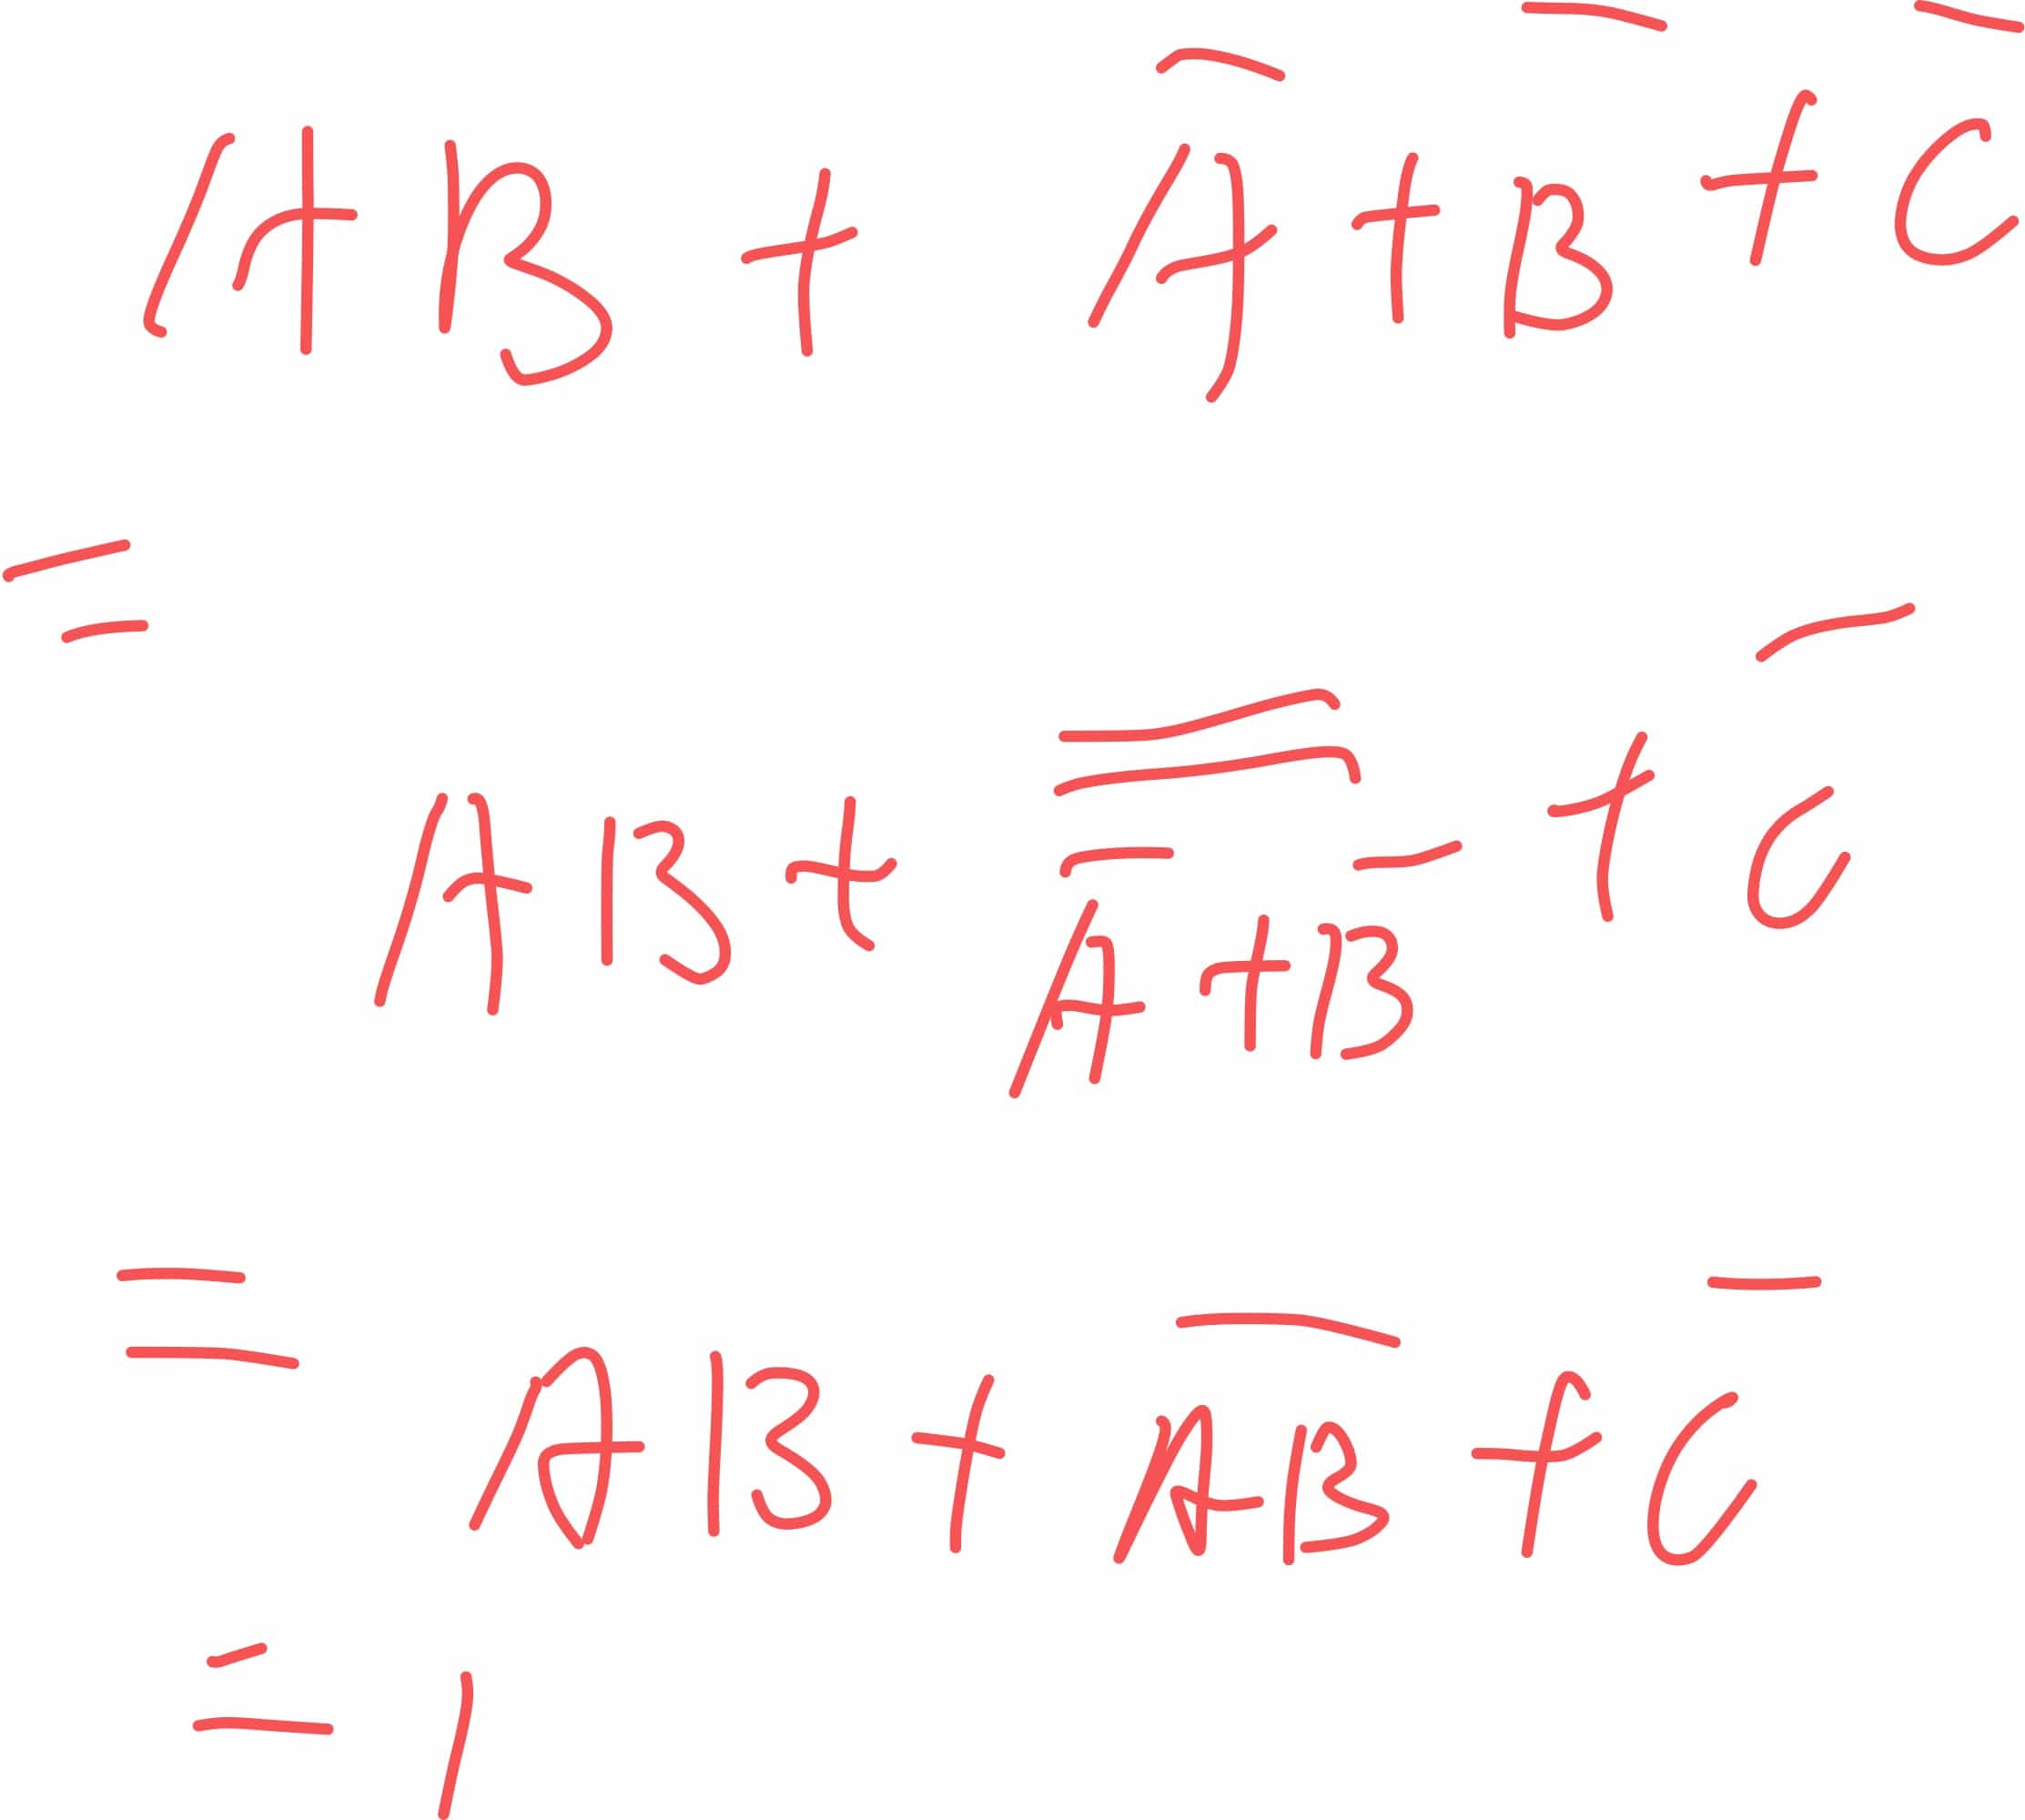 AB + A̅ + B̅ + C̅
= AB + A̿̅ + B̿̅ + C̅
= AB + A̅B̅ + C̅
= 1